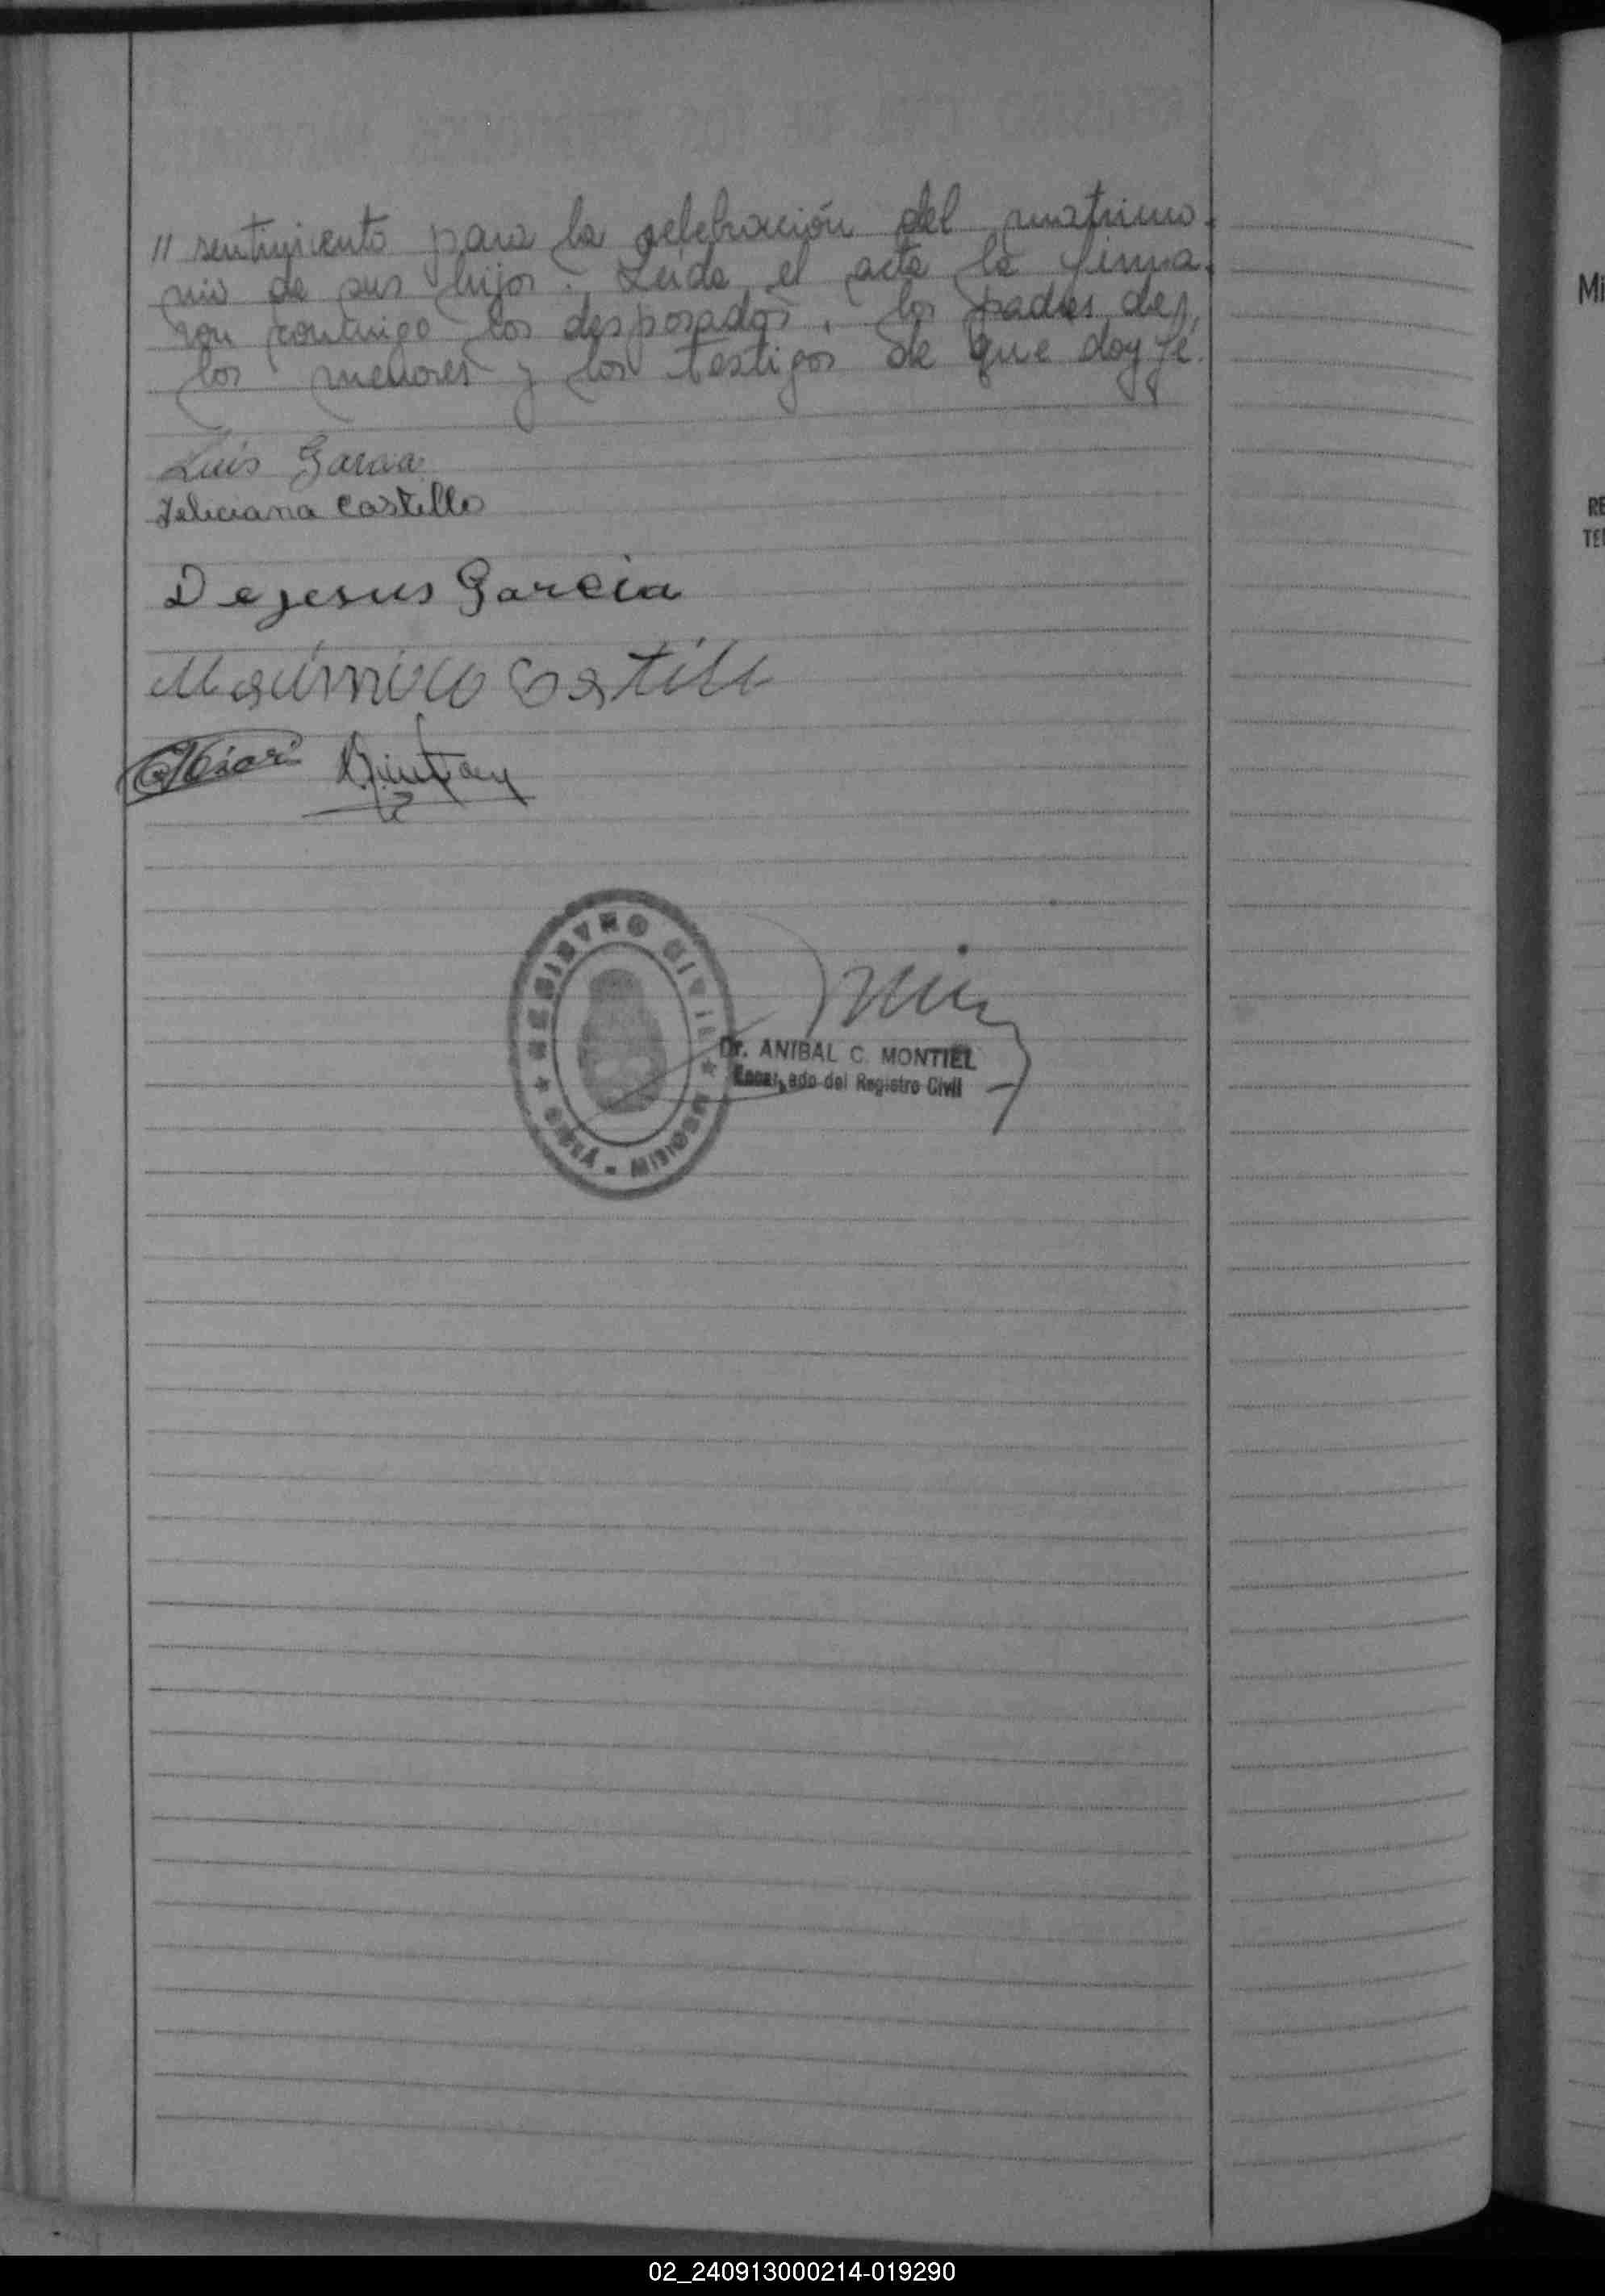 // sentimiento para la celebración del matrimo-
nio de sus hijos. Leída el acta la firma-
ron conmigo los desposados, los padres de
los menores y los testigos de que doy fe.
Luis Garcia
Feliciana Castillo
Dejesus Garcia
Castill
REGISTRO CIVIL
OBERÁ - MISIONES
Dr. ANIBAL C. MONTIEL
Encargado del Registro Civil
Mi
RE
TE
02_240913000214-019290